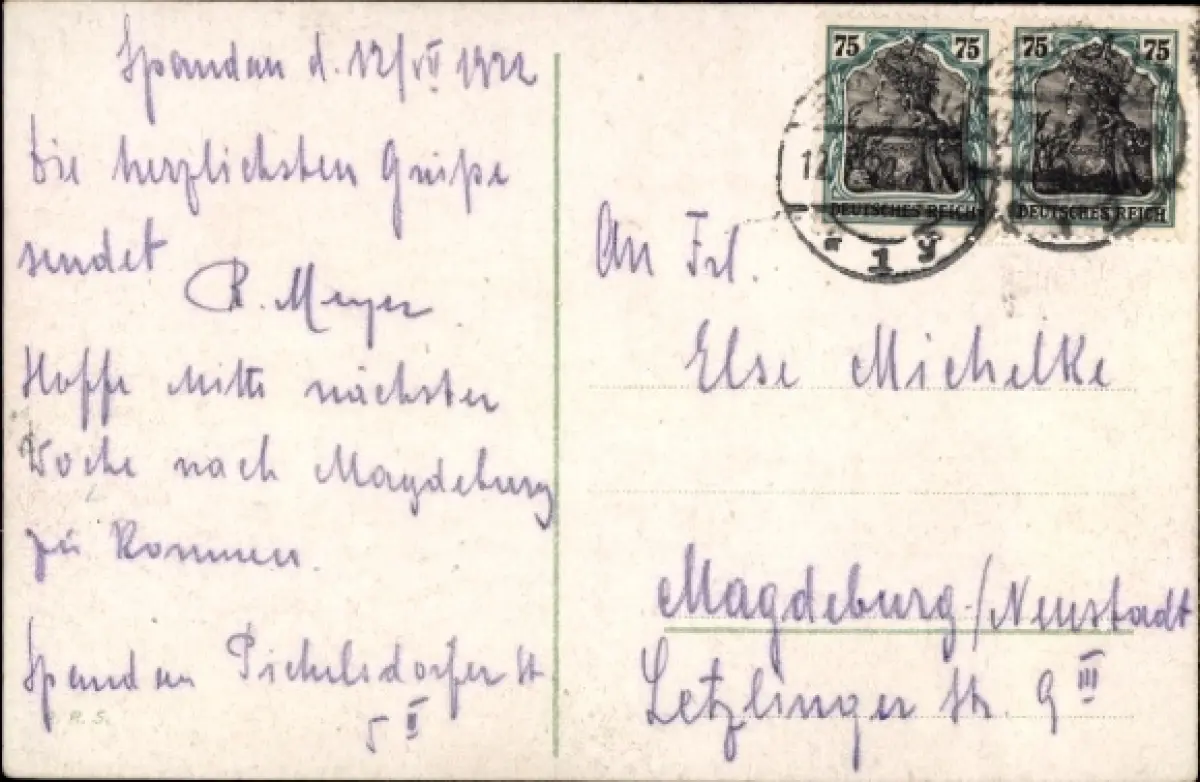 Spandau d. 12/VI 1922
Die herzlichsten Grüße
sendet
R. Meyer
Hoffe Mitte nächster
Woche nach Magdeburg
zu kommen.
Spandau Pichelsdorfer St.
5 II
R. S.
75 75
DEUTSCHES REICH
75 75
DEUTSCHES REICH
12
1
An Frl.
Else Michelke
Magdeburg/Neustadt
Letzlinger Str. 9 III